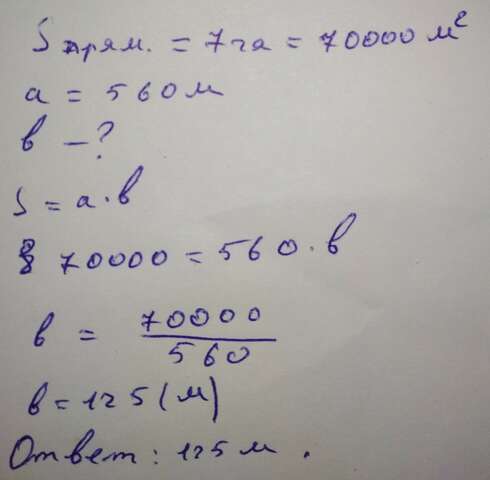 S прям. = 7 га = 70000 м²
a = 560 м
b – ?
S = a · b
70000 = 560 · b
b = 70000 / 560
b = 125 (м)
Ответ: 125 м.